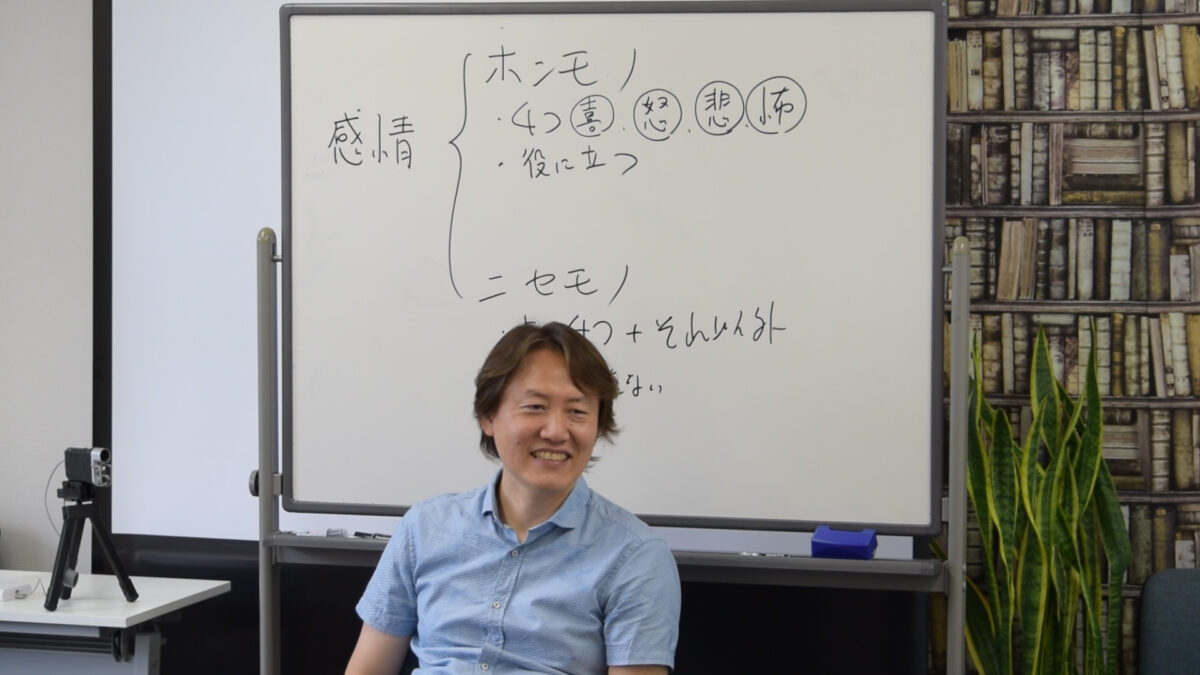 感情
ホンモノ
・4つ 喜.怒.悲.怖
・役に立つ
ニセモノ
4つ + それ以外
ない